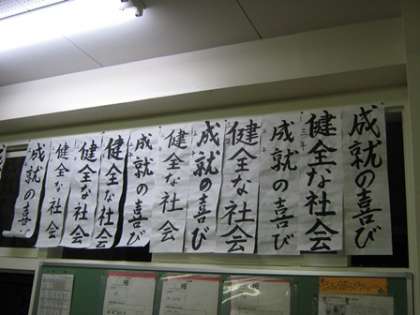 成就の喜び
健全な社会
成就の喜び
健全な社会
成就の喜び
健全な社会
成就の喜び
健全な社会
健全な社会
健全な社会
成就の